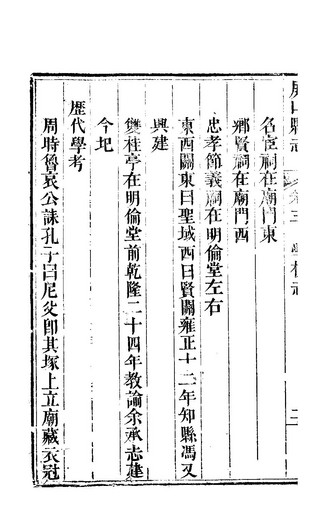 屏山縣志
卷三 學校志
二
名宦祠在廟門東
鄉賢祠在廟門西
忠孝節義祠在明倫堂左右
東西關東曰聖域西曰賢關雍正十二年知縣馮又
興建
雙桂亭在明倫堂前乾隆二十四年教諭余承志建
今圯
歷代學考
周時魯哀公誄孔子曰尼父卽其塚上立廟藏衣冠